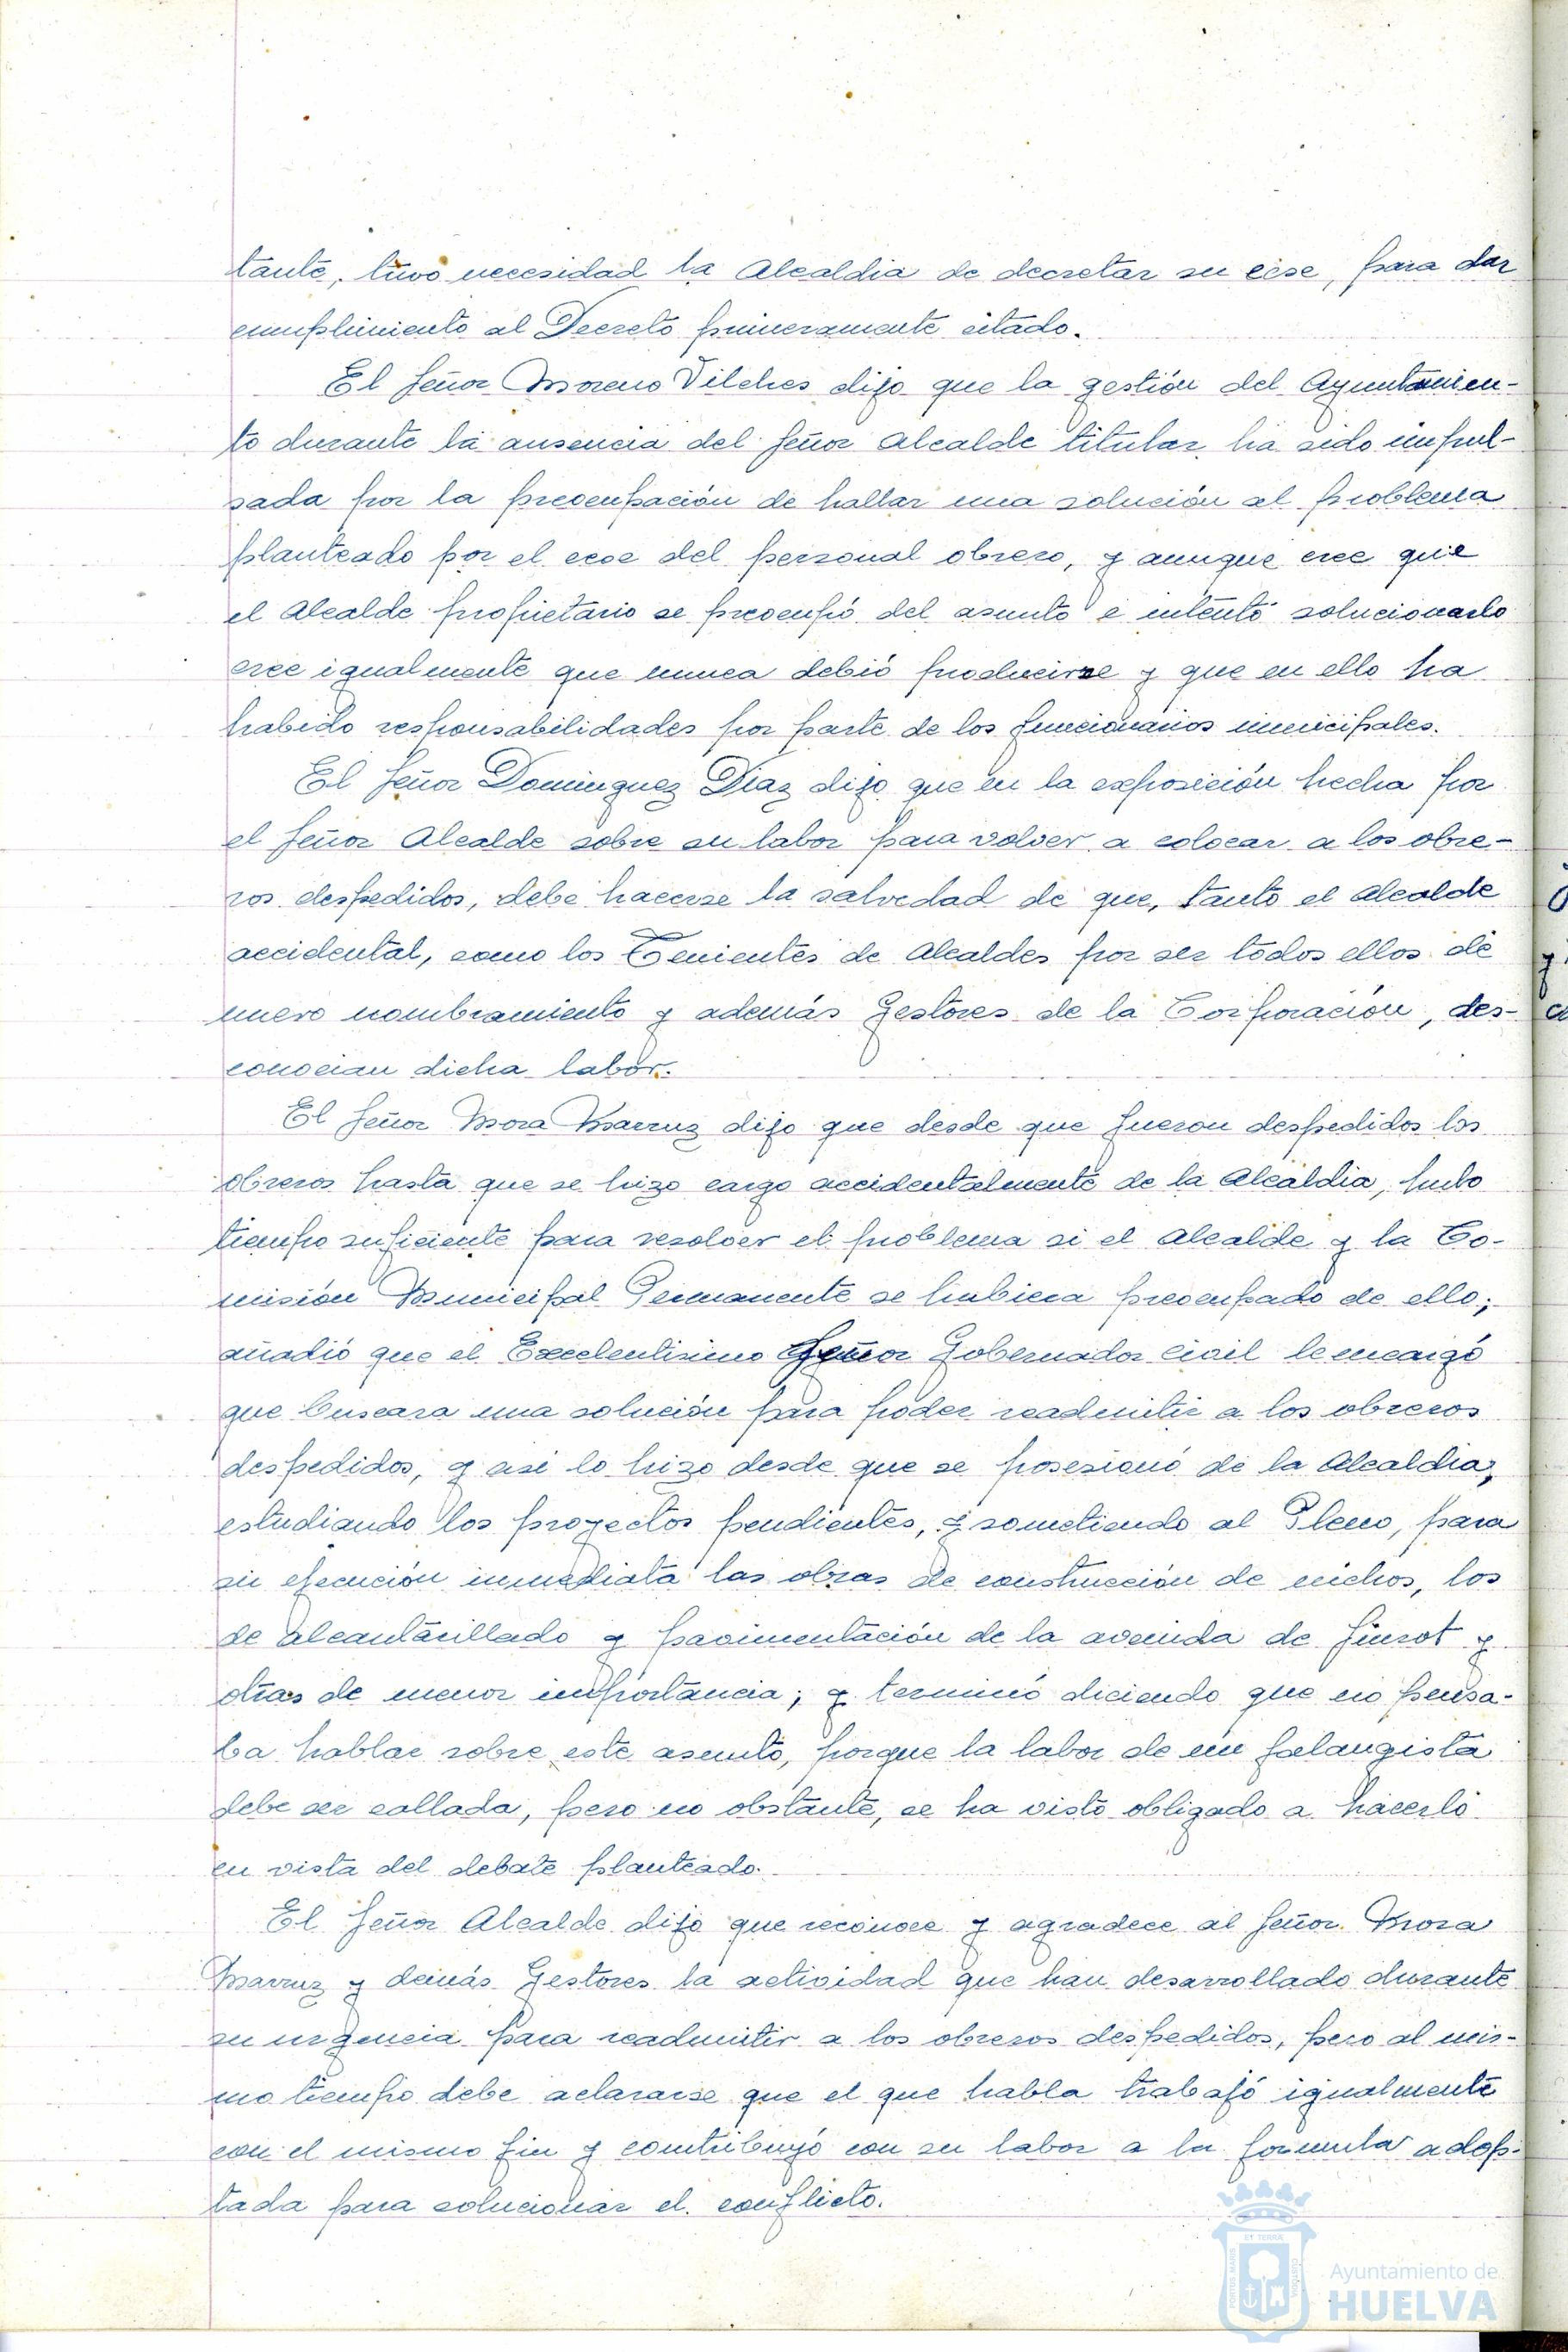 tante, tuvo necesidad la Alcaldia de decretar su cese, para dar
cumplimiento al Decreto primeramente citado.
El Señor Moreno Vilches dijo que la gestión del Ayuntamien-
to durante la ausencia del Señor Alcalde titular, ha sido impul-
sada por la preocupación de hallar una solución al problema
planteado por el cese del personal obrero, y aunque cree que
el Alcalde propietario se preocupó del asunto e intentó solucionarlo
cree igualmente que nunca debió producirse y que en ello ha
habido responsabilidades por parte de los funcionarios municipales.
El Señor Dominguez Diaz dijo que en la exposición hecha por
el Señor Alcalde sobre su labor para volver a colocar a los obre-
ros despedidos, debe hacerse la salvedad de que, tanto el Alcalde
accidental, como los Tenientes de Alcaldes por ser todos ellos de
nuevo nombramiento y además Gestores de la Corporación, des-
conocian dicha labor.
El Señor Mora Marruz dijo que desde que fueron despedidos los
obreros hasta que se hizo cargo accidentalmente de la Alcaldia, hubo
tiempo suficiente para resolver el problema si el Alcalde y la Co-
misión Municipal Permanente se hubiera preocupado de ello;
añadió que el Excelentisimo Señor Gobernador Civil le encargó
que buscara una solución para poder readmitir a los obreros
despedidos, y asi lo hizo desde que se posesionó de la Alcaldia,
estudiando los proyectos pendientes, y sometiendo al Pleno, para
su ejecución inmediata las obras de construcción de nichos, los
de alcantarillado y pavimentación de la avenida de
otras de menor importancia; y terminó diciendo que no pensa-
ba hablar sobre este asunto, porque la labor de un falangista
debe ser callada, pero no obstante, se ha visto obligado a hacerlo
en vista del debate planteado.
El Señor Alcalde dijo que reconoce y agradece al Señor Mora
Marruz y demás Gestores la actividad que han desarrollado durante
su para readmitir a los obreros despedidos, pero al mis-
mo tiempo debe aclararse que el que habla trabajó igualmente
con el mismo fin y contribuyó con su labor a la formula adop-
tada para solucionar el conflicto.
Ayuntamiento de
HUELVA